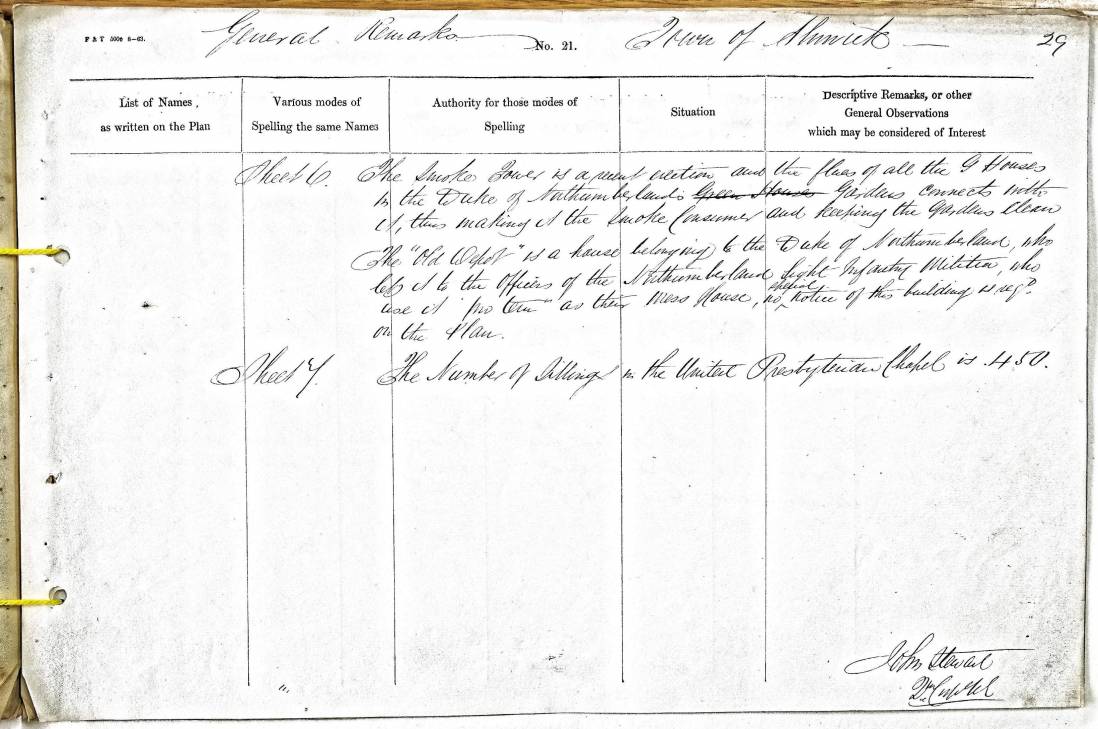 F & T 500e 8—63.
General Remarks No. 21. Town of Alnwick 29
List of Names,
as written on the Plan
Various modes of
Spelling the same Names
Authority for those modes of
Spelling
Situation
Descriptive Remarks, or other
General Observations
which may be considered of Interest
Sheet 6. The Smoke Tower is a recent erection and the flues of all the G Houses
in the Duke of Northumberlands Green Houses Gardens connects with
it, thus making it the Smoke Consumer and keeping the Gardens clean
The "Old Depot" is a house belonging to the Duke of Northumberland, who
lets it to the Officers of the Northumberland Light Infantry Militia, who
use it "pro tem" as their Mess House, no special notice of this building is reqd.
on the Plan.
Sheet 7. The Number of Sittings in the United Presbyterian Chapel is 450.
John Stewart